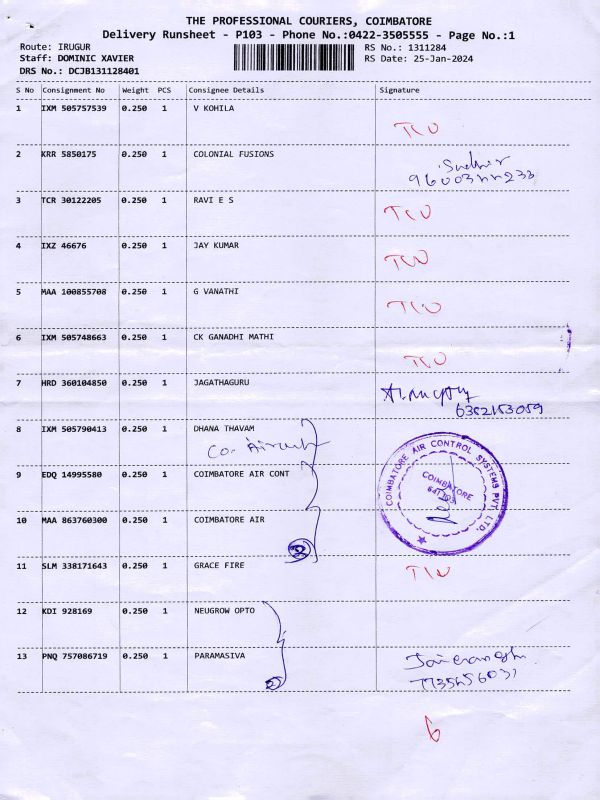 THE PROFESSIONAL COURIERS, COIMBATORE
Delivery Runsheet - P103 - Phone No.:0422-3505555 - Page No.:1
Route: IRUGUR RS No.: 1311284
Staff: DOMINIC XAVIER RS Date: 25-Jan-2024
DRS No.: DCJB131128401
S No Consignment No Weight PCS Consignee Details Signature
1 IXM 505757539 0.250 1 V KOHILA
2 KRR 5850175 0.250 1 COLONIAL FUSIONS
3 TCR 30122205 0.250 1 RAVI E S
4 IXZ 46676 0.250 1 JAY KUMAR
5 MAA 100855708 0.250 1 G VANATHI
6 IXM 505748663 0.250 1 CK GANADHI MATHI
7 HRD 360104850 0.250 1 JAGATHAGURU
6382153059
8 IXM 505790413 0.250 1 DHANA THAVAM
9 EDQ 14995580 0.250 1 COIMBATORE AIR CONT
10 MAA 863760300 0.250 1 COIMBATORE AIR
COIMBATORE AIR CONTROL SYSTEMS PVT. LTD.
COIMBATORE
641 103
2
11 SLM 338171643 0.250 1 GRACE FIRE
12 KDI 928169 0.250 1 NEUGROW OPTO
13 PNQ 757086719 0.250 1 PARAMASIVA
2
6